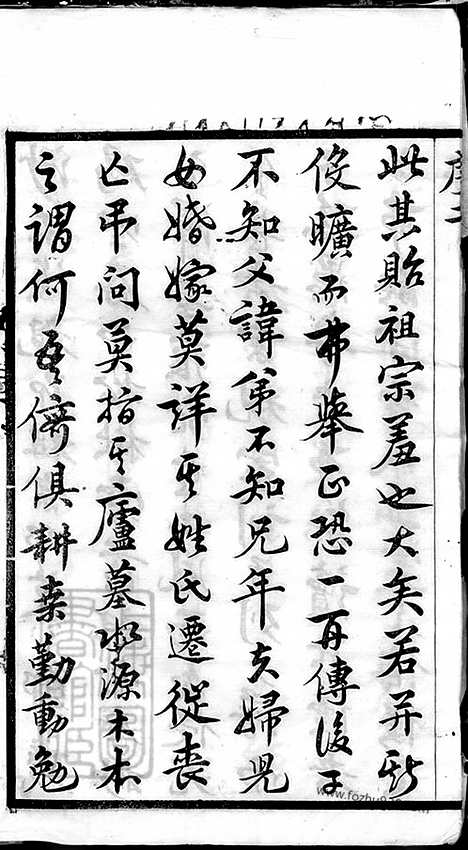 序二
此其貽祖宗羞也大矣若并斯
役曠而弗舉正恐一再傳後子
不知父諱弟不知兄年夫婦兒
女婚嫁莫詳其姓氏遷徙喪
亡弔問莫指其廬墓水源木本
之謂何吾儕俱耕桑勤動勉